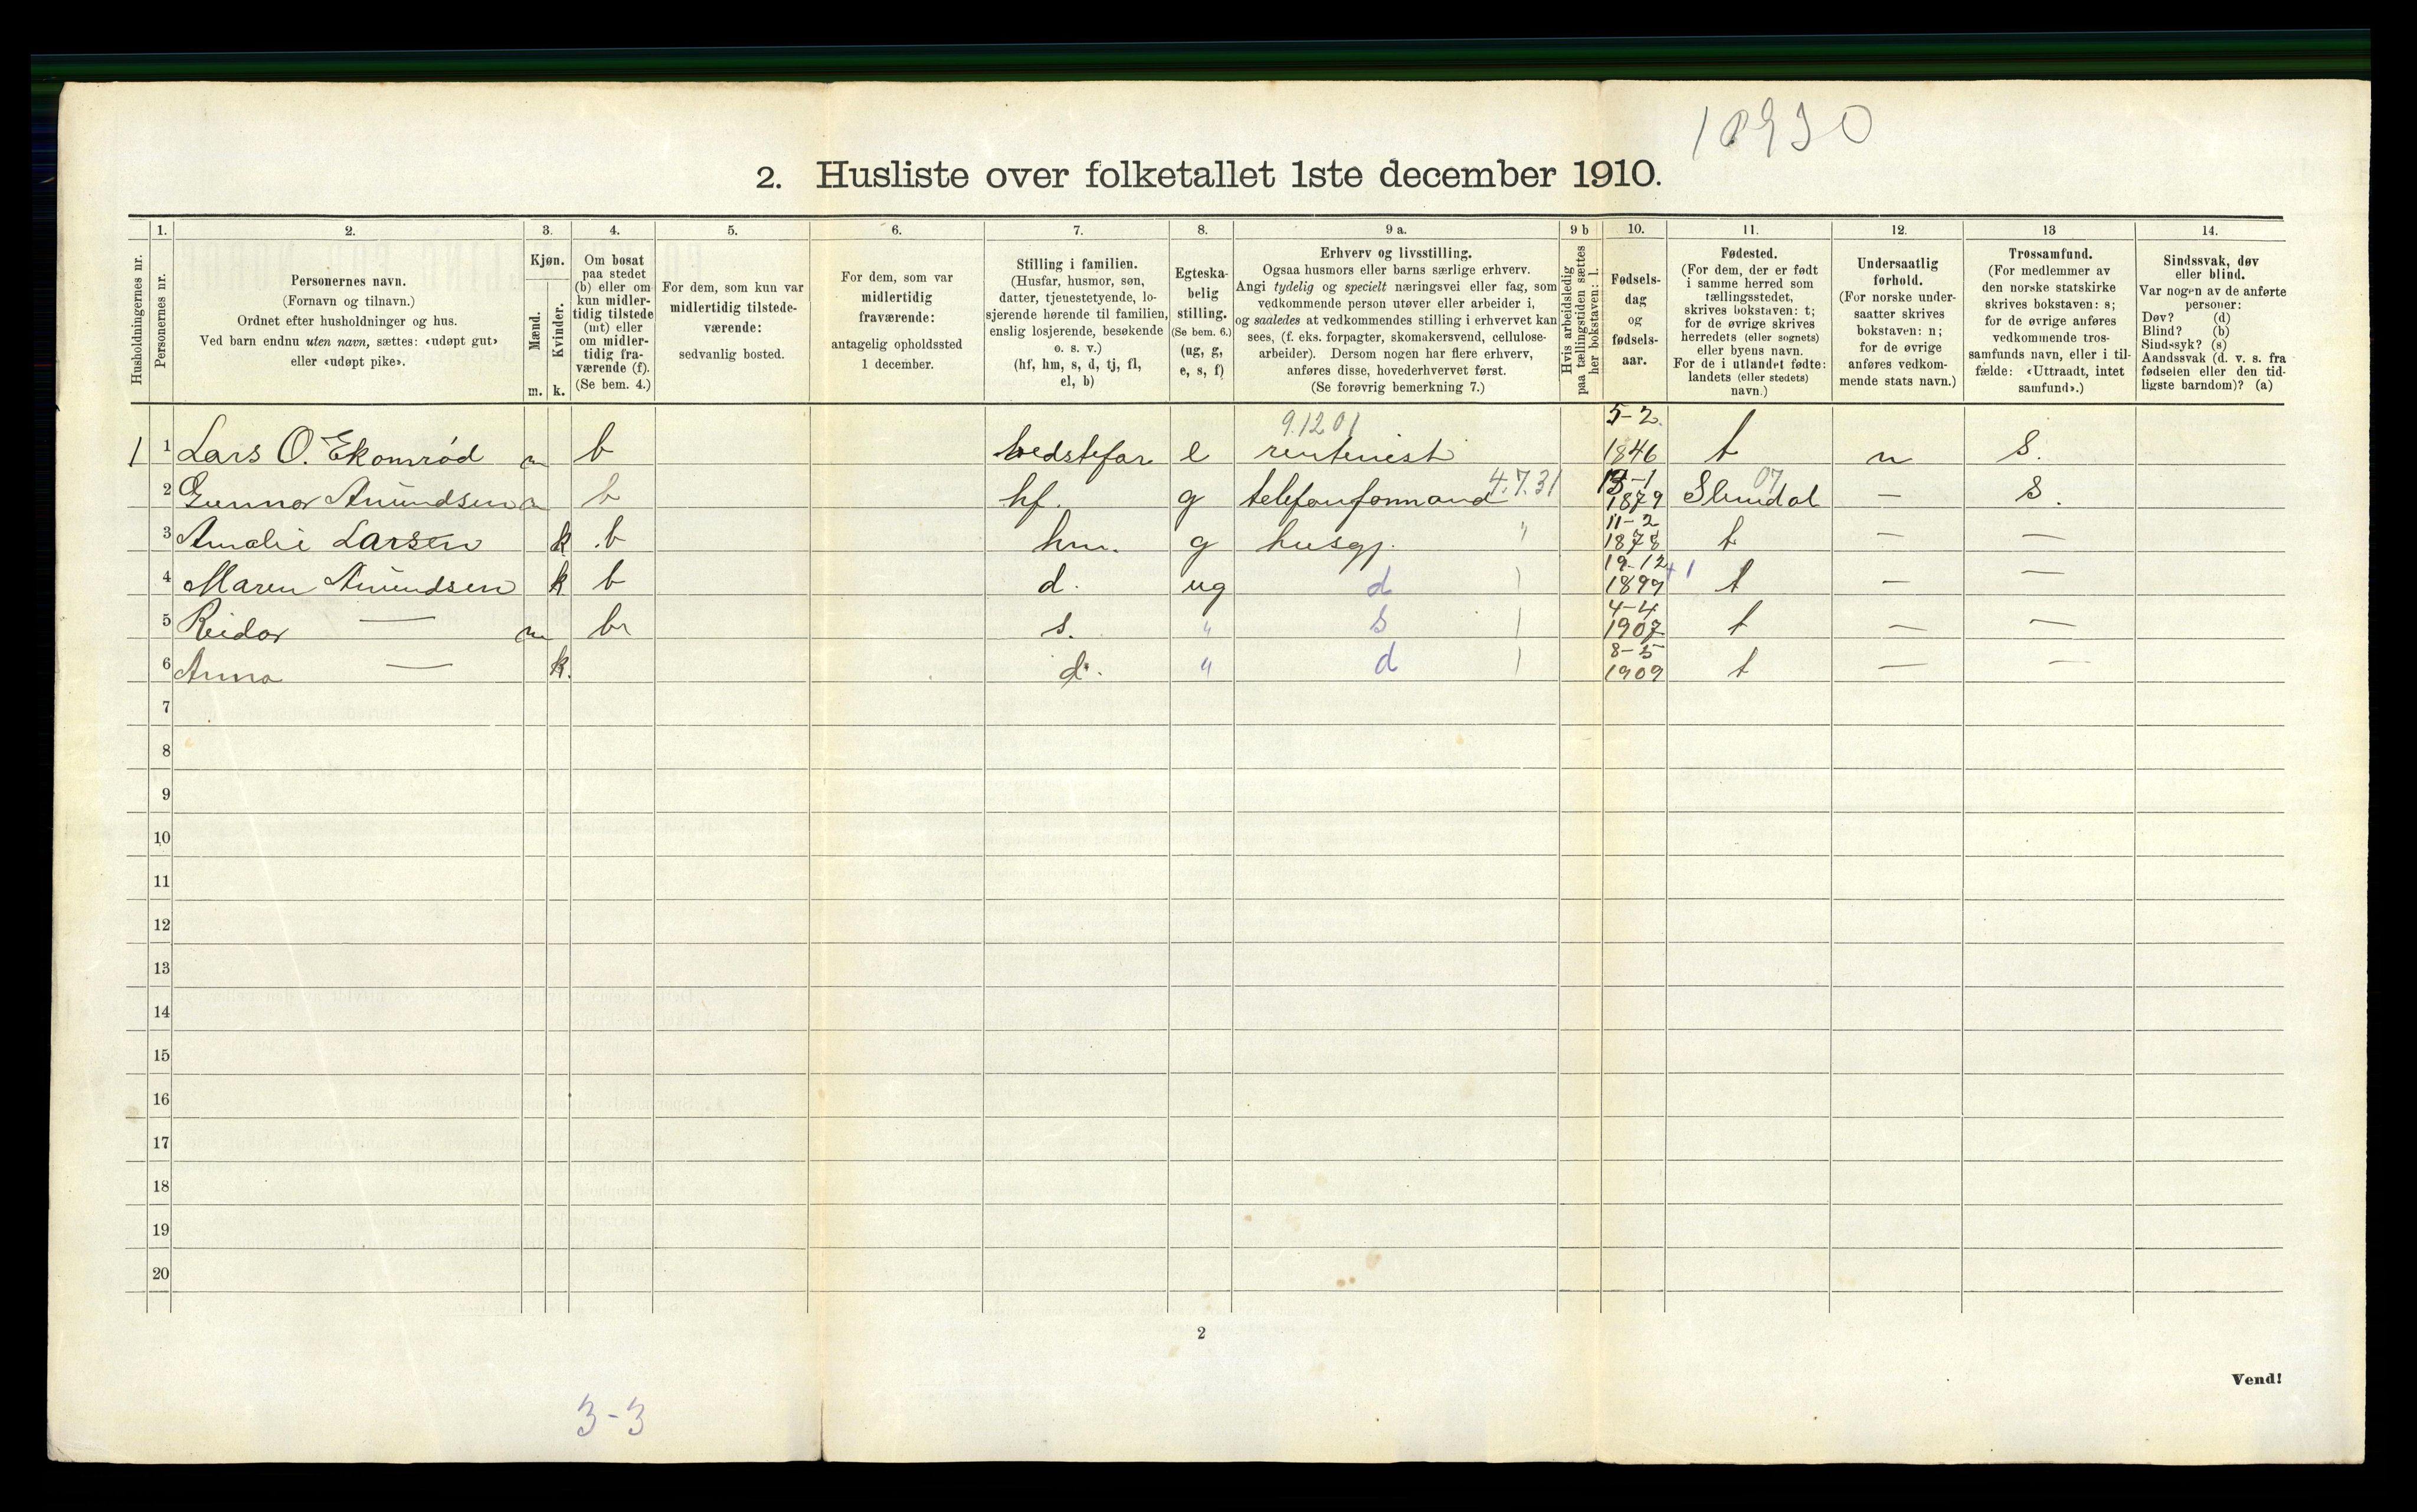 10930
2. Husliste over folketallet 1ste december 1910.
Husholdningernes nr.
1.
Personernes nr.
2.
Personernes navn.
(Fornavn og tilnavn.)
Ordnet efter husholdninger og hus.
Ved barn endnu uten navn, sættes: «udøpt gut»
eller «udøpt pike».
3.
Kjøn.
Mænd.
m.
Kvinder.
k.
4.
Om bosat
paa stedet
(b) eller om
kun midler-
tidig tilstede
(mt) eller
om midler-
tidig fra-
værende (f).
(Se bem. 4.)
5.
For dem, som kun var
midlertidig tilstede-
værende:
sedvanlig bosted.
6.
For dem, som var
midlertidig
fraværende:
antagelig opholdssted
1 december.
7.
Stilling i familien.
(Husfar, husmor, søn,
datter, tjenestetyende, lo-
sjerende hørende til familien,
enslig losjerende, besøkende
o. s. v.)
(hf, hm, s, d, tj, fl,
el, b)
8.
Egteska-
belig
stilling.
(Se bem. 6.)
(ug, g,
e, s, f)
9 a.
Erhverv og livsstilling.
Ogsaa husmors eller barns særlige erhverv.
Angi tydelig og specielt næringsvei eller fag, som
vedkommende person utøver eller arbeider i,
og saaledes at vedkommendes stilling i erhvervet kan
sees, (f. eks. forpagter, skomakersvend, cellulose-
arbeider). Dersom nogen har flere erhverv,
anføres disse, hovederhvervet først.
(Se forøvrig bemerkning 7.)
9 b
Hvis arbeidsledig
paa tællingstiden sættes
her bokstaven: l.
10.
Fødsels-
dag
og
fødsels-
aar.
11.
Fødested.
(For dem, der er født
i samme herred som
tællingsstedet,
skrives bokstaven: t;
for de øvrige skrives
herredets (eller sognets)
eller byens navn.
For de i utlandet fødte:
landets (eller stedets)
navn.)
12.
Undersaatlig
forhold.
(For norske under-
saatter skrives
bokstaven: n;
for de øvrige
anføres vedkom-
mende stats navn.)
13
Trossamfund.
(For medlemmer av
den norske statskirke
skrives bokstaven: s;
for de øvrige anføres
vedkommende tros-
samfunds navn, eller i til-
fælde: «Uttraadt, intet
samfund».)
14.
Sindssvak, døv
eller blind.
Var nogen av de anførte
personer:
Døv? (d)
Blind? (b)
Sindssyk? (s)
Aandssvak (d. v. s. fra
fødselen eller den tid-
ligste barndom)? (a)
9.12 01 5-2.
1 1 Lars O. Ekornrød m b bedstefar e rentenist 1846 t n S.
4.7.31 13-1 07
2 Gunnar Amundsen m b hf. g telefonformand 1879 Slemdal — S.
11-2
3 Amalie Larsen k b hm. g husgj. " 1878 t — —
19-12 +1
4 Maren Amundsen k b d. ug d 1 1899 t — —
4-4
5 Reidar — m b s. " S 1 1907 t — —
8-5
6 Anna — k. d. " d 1 1909 t — —
7
8
9
10
11
12
13
14
15
16
17
18
19
20
2
Vend!
3-3